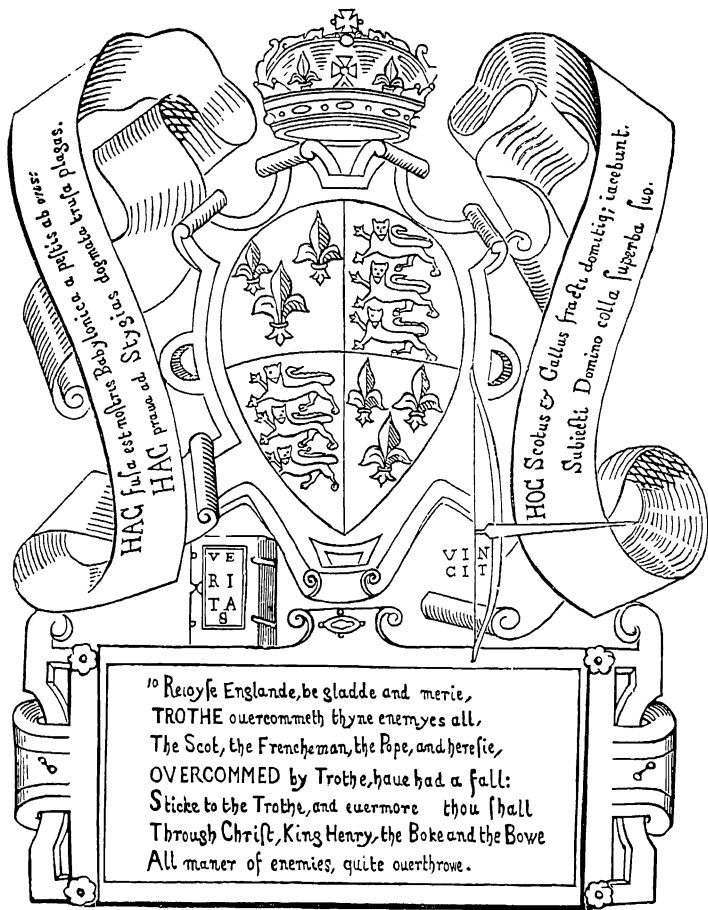 HAC fuſa est noſtris Babylonica a peſtis ab oris:
HAC praua ad Stygias dogmata truſa plagas.
HOC Scotus & Gallus fracti domitiq; iacebunt.
Subiecti Domino colla ſuperba ſuo.
VE
RI
TA
S
VIN
CIT
10 Reioyſe Englande, be gladde and merie,
TROTHE ouercommeth thyne enemyes all,
The Scot, the Frencheman, the Pope, and hereſie,
OVERCOMMED by Trothe, haue had a fall:
Sticke to the Trothe, and euermore thou ſhall
Through Chriſt, King Henry, the Boke and the Bowe
All maner of enemies, quite ouerthrowe.